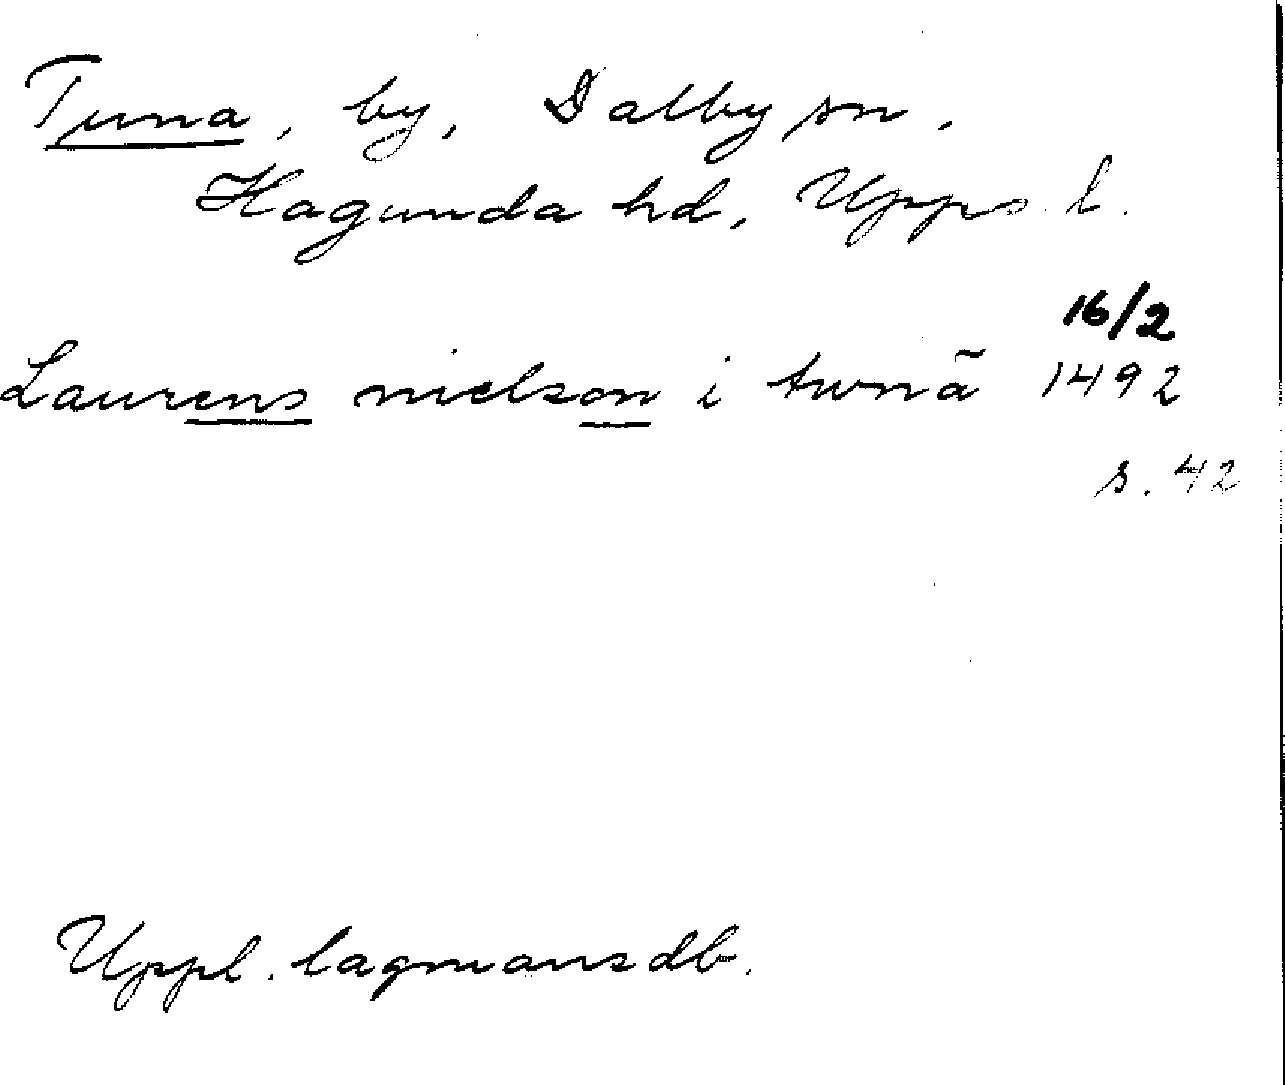 Tuna, by, Dalby sn.
Hagunda hd, Upps. l.
16/2
Laurens nielson i twnā 1492
s. 42
Uppl. lagmansdb.